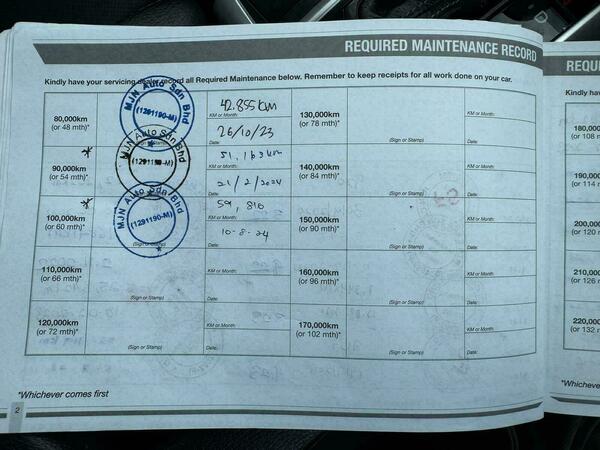 REQUIRED MAINTENANCE RECORD
Kindly have your servicing dealer record all Required Maintenance below. Remember to keep receipts for all work done on your car.
80,000km
(or 48 mth)*
MJN Auto Sdn Bhd
(1291190-M)
42.855 km
KM or Month:
26/10/23
Date:
90,000km
(or 54 mth)*
MJN Auto Sdn Bhd
(1291190-M)
KM or Month:
21/2/2024
Date:
100,000km
(or 60 mth)*
MJN Auto Sdn Bhd
(1291190-M)
59, 810
KM or Month:
10-8-24
Date:
110,000km
(or 66 mth)*
(Sign or Stamp)
KM or Month:
Date:
120,000km
(or 72 mth)*
(Sign or Stamp)
KM or Month:
Date:
130,000km
(or 78 mth)*
(Sign or Stamp)
KM or Month:
Date:
140,000km
(or 84 mth)*
(Sign or Stamp)
KM or Month:
Date:
150,000km
(or 90 mth)*
(Sign or Stamp)
KM or Month:
Date:
160,000km
(or 96 mth)*
(Sign or Stamp)
KM or Month:
Date:
170,000km
(or 102 mth)*
(Sign or Stamp)
KM or Month:
Date:
*Whichever comes first
2
REQU
Kindly have
180,0
(or 108 m
190,0
(or 114 m
200,00
(or 120 m
210,00
(or 126 m
220,00
(or 132 m
*Whicheve